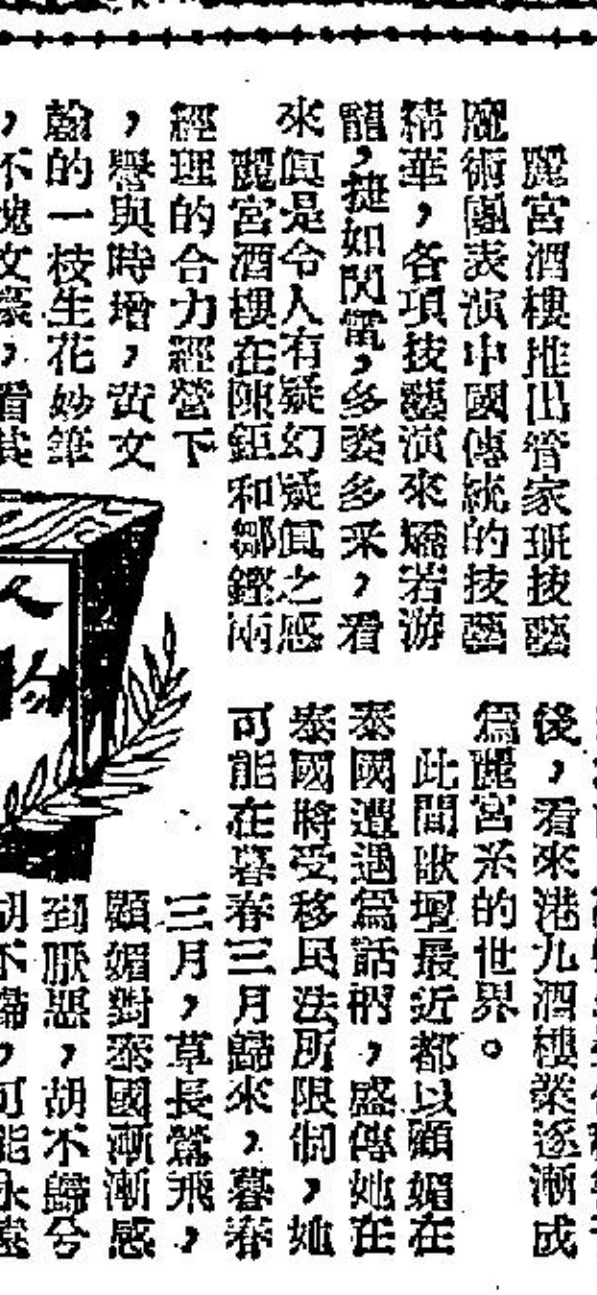 麗宮酒樓推出管家班技藝
魔術團表演中國傳統的技藝
精華，各項技藝演來矯若游
龍，捷如閃電，多姿多采，看
來眞是令人有疑幻疑眞之感
麗宮酒樓在陳鉅和鄒鏗兩
經理的合力經營下
，譽與時增，黃文
翰的一枝生花妙筆
，不愧文豪，看其
人物
後，看來港九酒樓業逐漸成
爲麗宮系的世界。
此間歌壇最近都以顧媚在
泰國遭遇爲話柄，盛傳她在
泰國將受移民法所限制，她
可能在暮春三月歸來，暮春
三月，草長鶯飛，
顧媚對泰國漸漸感
到厭惡，胡不歸兮
胡不歸，可能永遠